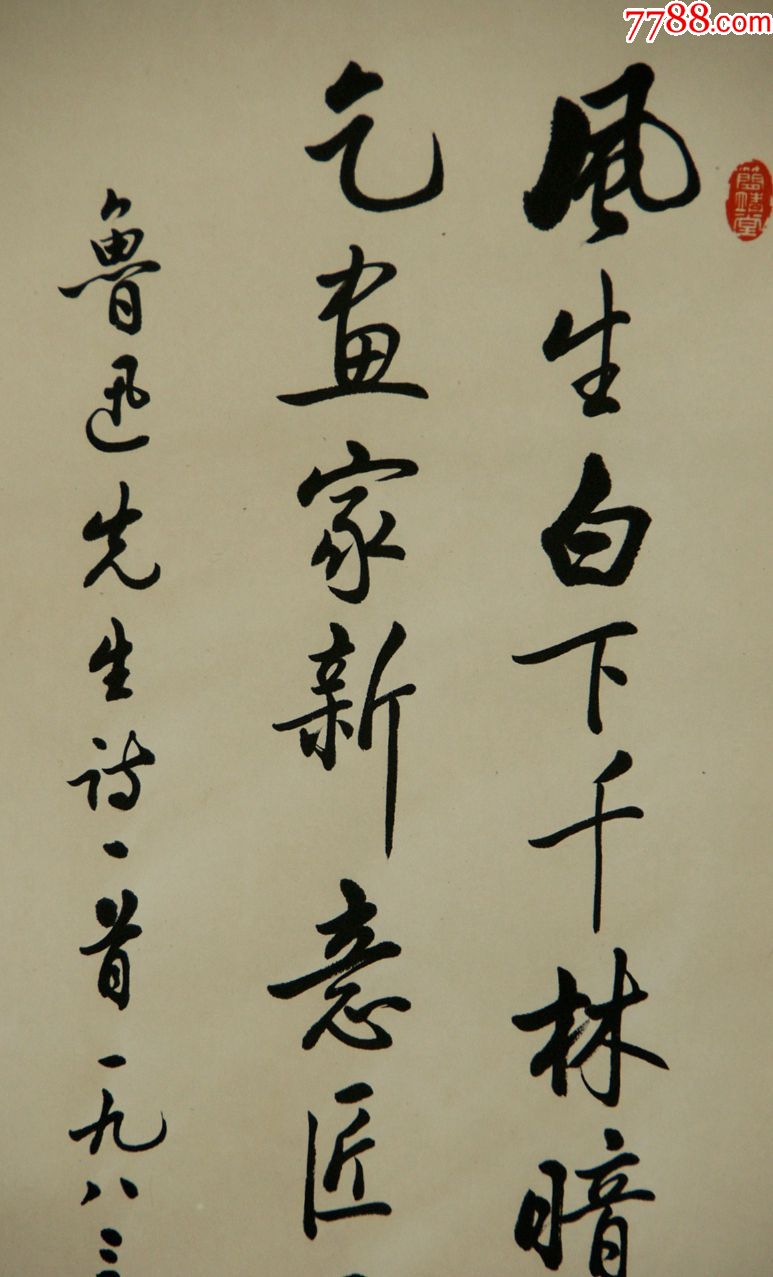 風生白下千林暗
乞画家新意匠
魯迅先生诗一首一九八三
7788.com